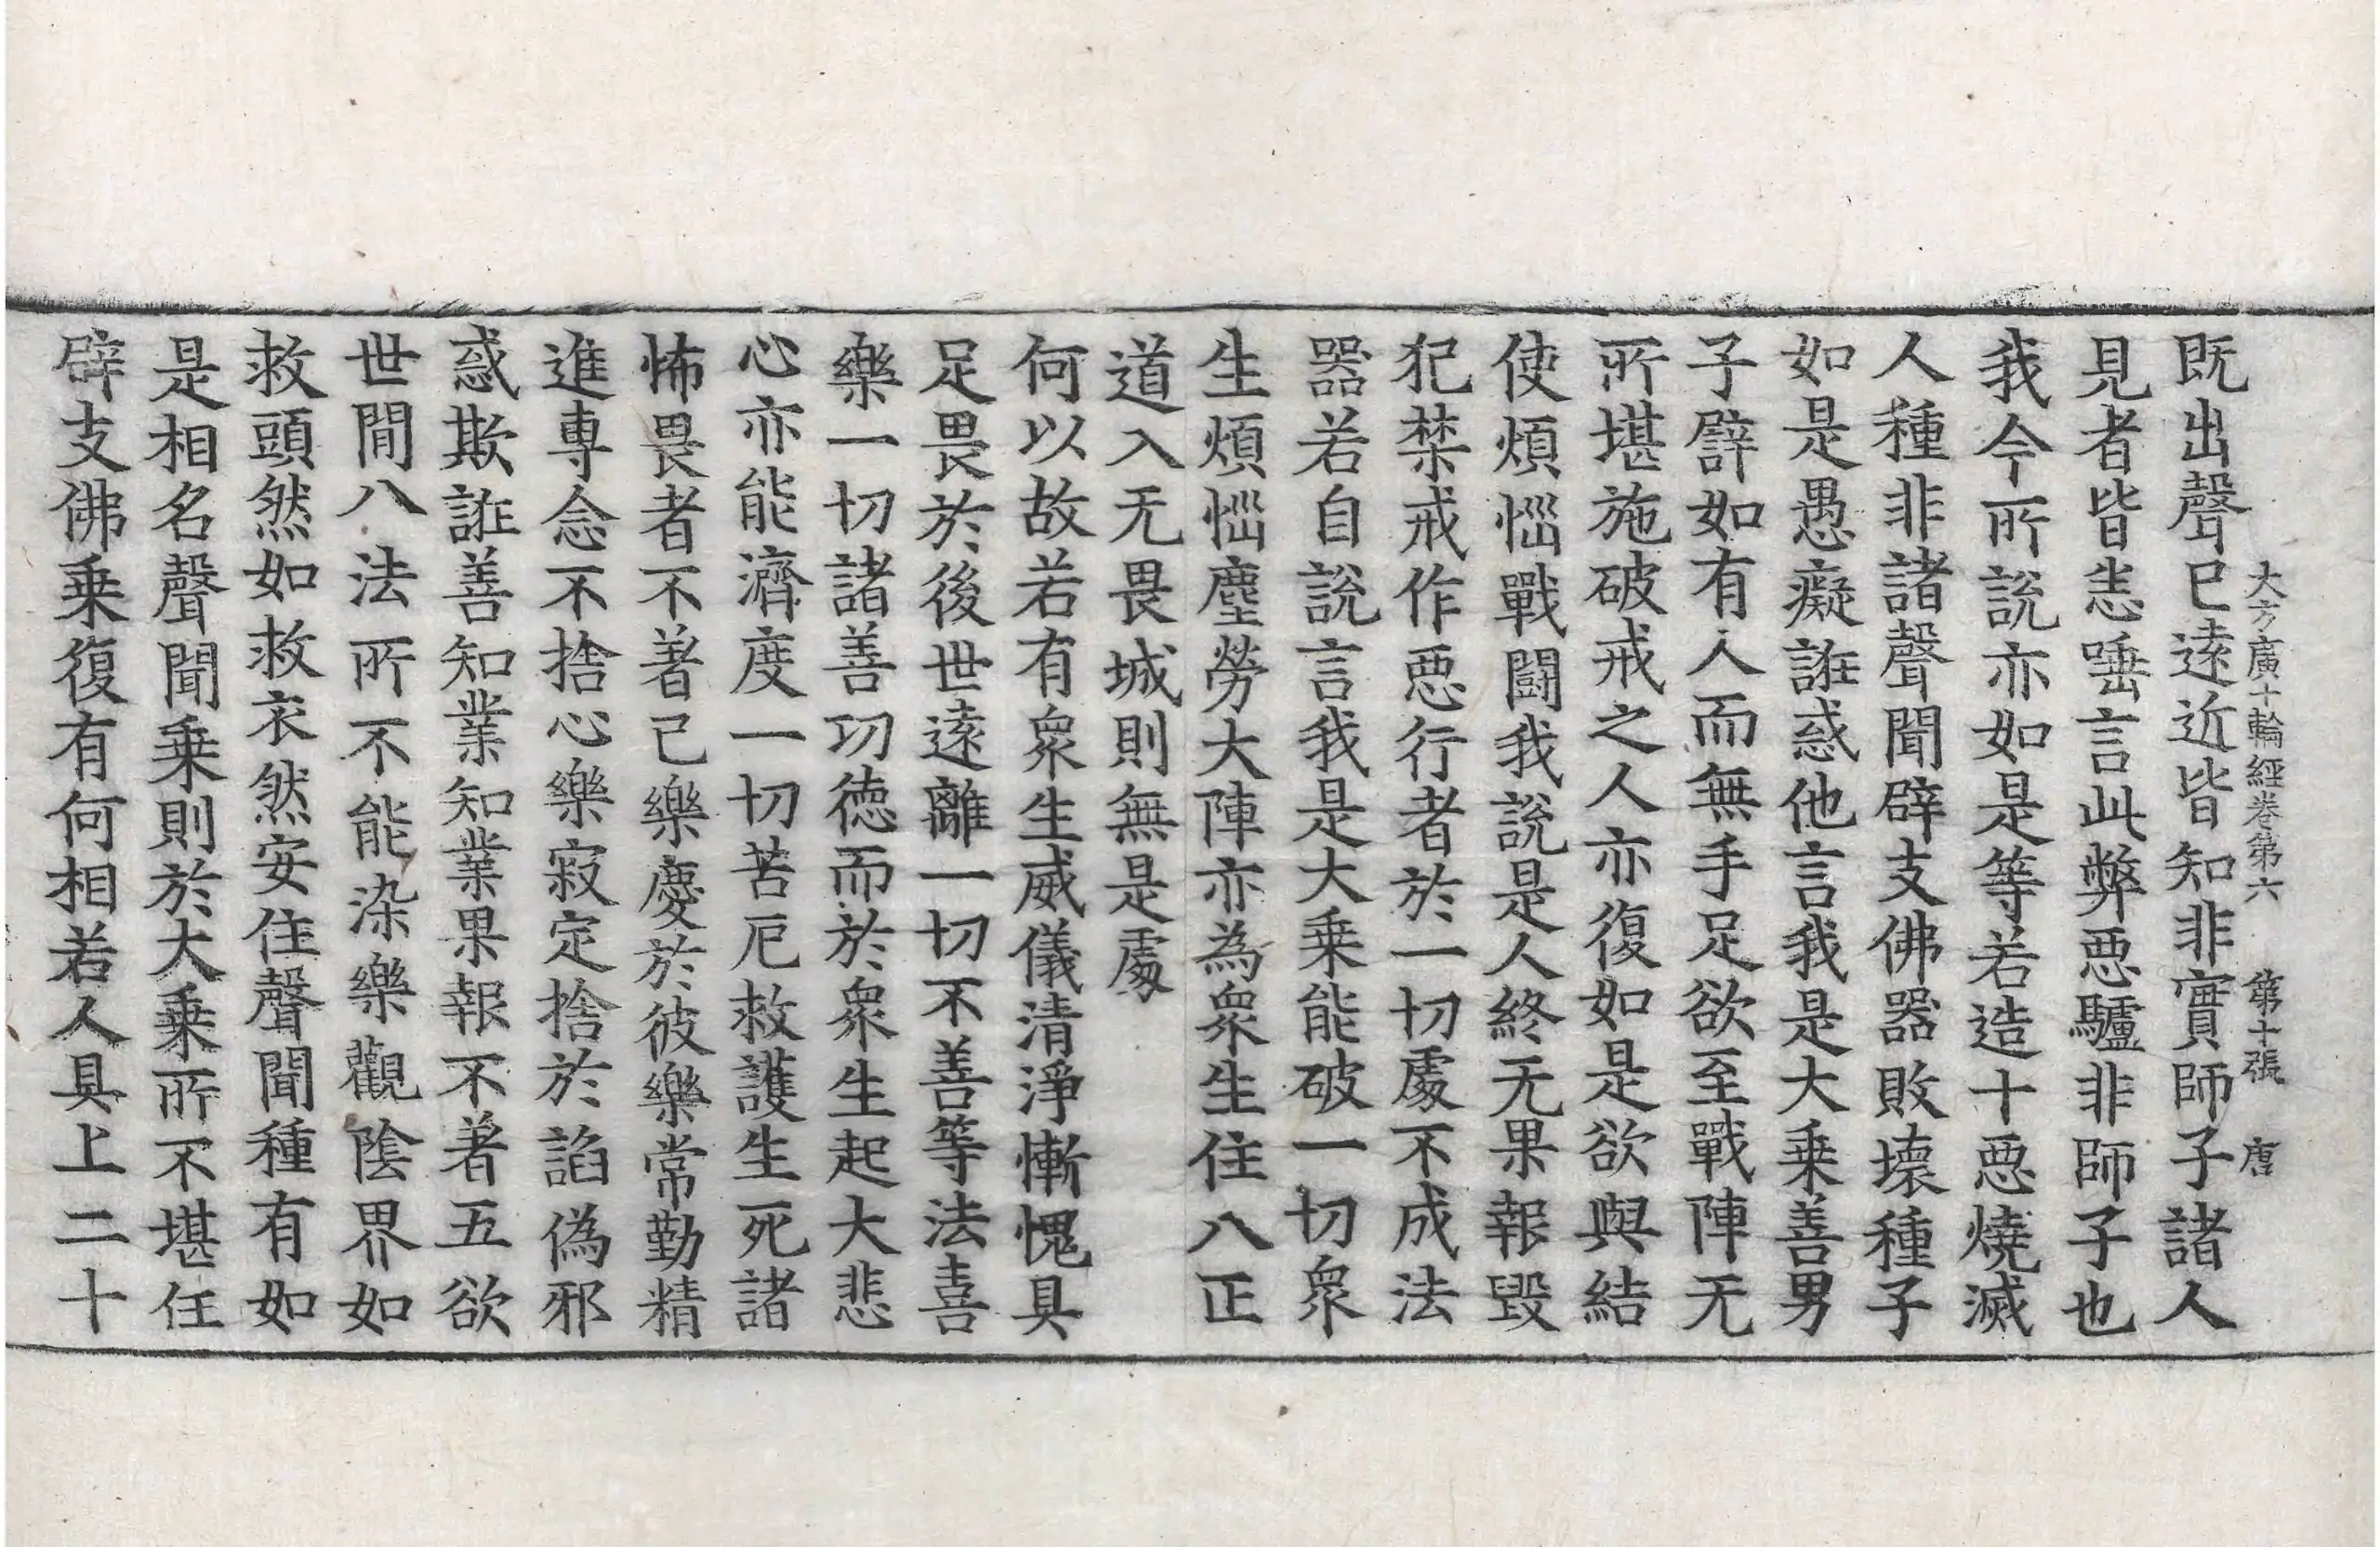 大方廣十輪經卷第六 第十張 唐
既出聲已遠近皆知非實師子諸人
見者皆恚唾言此弊惡驢非師子也
我今所說亦如是等若造十惡燒滅
人種非諸聲聞辟支佛器敗壞種子
如是愚癡誑惑他言我是大乘善男
子譬如有人而無手足欲至戰陣无
所堪施破戒之人亦復如是欲與結
使煩惱戰鬪我說是人終无果報毀
犯禁戒作惡行者於一切處不成法
器若自說言我是大乘能破一切衆
生煩惱塵勞大陣亦為衆生住八正
道入无畏城則無是處
何以故若有衆生威儀清淨慚愧具
足畏於後世遠離一切不善等法喜
樂一切諸善功德而於衆生起大悲
心亦能濟度一切苦厄救護生死諸
怖畏者不著己樂慶於彼樂常勤精
進專念不捨心樂寂定捨於諂偽邪
惑欺誑善知業知業果報不著五欲
世間八法所不能染樂觀陰界如
救頭然如救衣然安住聲聞種有如
是相名聲聞乘則於大乘所不堪任
辟支佛乘復有何相若人具上二十